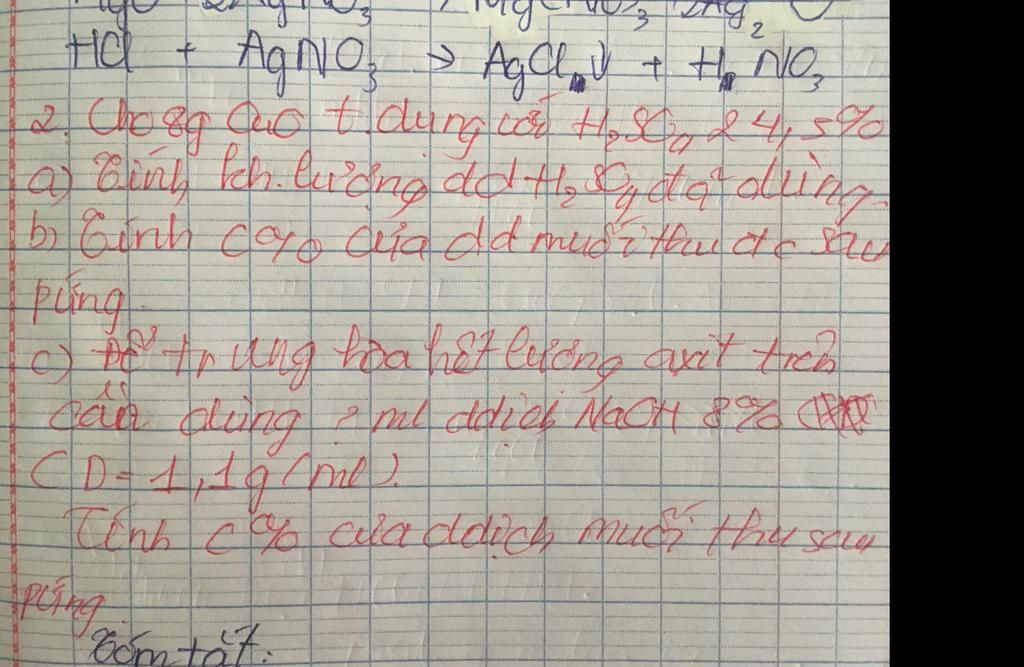 HCl + AgNO3 → AgCl ↓ + HNO3
2. Cho 8g CuO t.dụng với H2SO4 24,5%
a) Tính kh.lượng dd H2SO4 đã dùng.
b) Tính C% của dd muối thu đc sau
pứng.
c) Để trung hòa hết lượng axit trên
cần dùng ? ml ddịch NaOH 8%
(D = 1,1g/ml).
Tính C% của ddịch muối thu sau
pứng.
Tóm tắt: